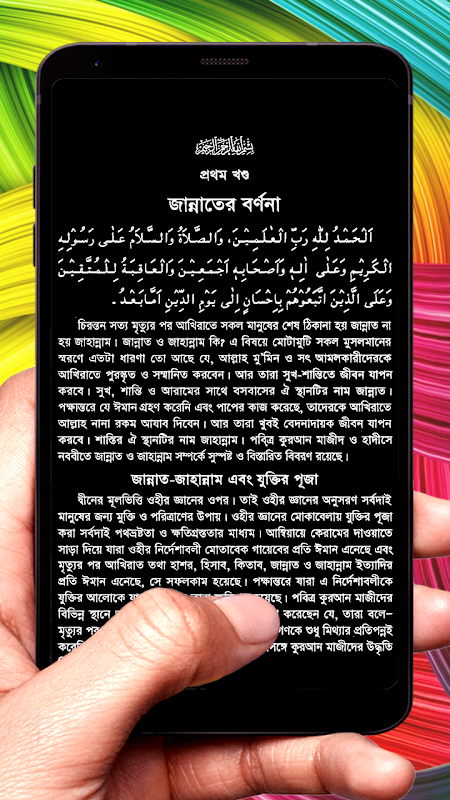 بسم الله الرحمن الرحيم
প্রথম খণ্ড
জান্নাতের বর্ণনা
اَلْحَمْدُ لِلّٰهِ رَبِّ الْعٰلَمِيْنَ، وَالصَّلَاةُ وَالسَّلَامُ عَلٰى رَسُوْلِهِ
الْكَرِيْمِ وَعَلٰى اٰلِهٖ وَاَصْحَابِهٖ اَجْمَعِيْنَ وَالْعَاقِبَةُ لِلْمُتَّقِيْنَ
وَعَلَى الَّذِيْنَ اتَّبَعُوْهُمْ بِاِحْسَانٍ اِلٰى يَوْمِ الدِّيْنِ اَمَّابَعْدُ ـ
চিরন্তন সত্য মৃত্যুর পর আখিরাতে সকল মানুষের শেষ ঠিকানা হয় জান্নাত না
হয় জাহান্নাম। জান্নাত ও জাহান্নাম কি? এ বিষয়ে মোটামুটি সকল মুসলমানের
স্মরণে এতটা ধারণা তো আছে যে, আল্লাহ মু'মিন ও সৎ আমলকারীদেরকে
আখিরাতে পুরস্কৃত ও সম্মানিত করবেন। আর তারা সুখ-শান্তিতে জীবন যাপন
করবে। সুখ, শান্তি ও আরামের সাথে বসবাসের ঐ স্থানটির নাম জান্নাত।
পক্ষান্তরে যে ঈমান গ্রহণ করেনি এবং পাপের কাজ করেছে, তাদেরকে আখিরাতে
আল্লাহ নানা রকম আযাব দিবেন। আর তারা খুবই বেদনাদায়ক জীবন যাপন
করবে। শাস্তির ঐ স্থানটির নাম জাহান্নাম। পবিত্র কুরআন মাজীদ ও হাদীসে
নববীতে জান্নাত ও জাহান্নাম সম্পর্কে সুস্পষ্ট ও বিস্তারিত বিবরণ রয়েছে।
জান্নাত-জাহান্নাম এবং যুক্তির পূজা
দ্বীনের মূলভিত্তি ওহীর জ্ঞানের ওপর। তাই ওহীর জ্ঞানের অনুসরণ সর্বদাই
মানুষের জন্য মুক্তি ও পরিত্রাণের উপায়। ওহীর জ্ঞানের মোকাবেলায় যুক্তির পূজা
করা সর্বদাই পথভ্রষ্টতা ও ক্ষতিগ্রস্ততার মাধ্যম। আম্বিয়ায়ে কেরামের দাওয়াতে
সাড়া দিয়ে যারা ওহীর নির্দেশাবলী মোতাবেক গায়েবের প্রতি ঈমান এনেছে এবং
মৃত্যুর পর আখিরাত তথা হাশর, হিসাব, কিতাব, জান্নাত ও জাহান্নাম ইত্যাদির
প্রতি ঈমান এনেছে, সে সফলকাম হয়েছে। পক্ষান্তরে যারা এ নির্দেশাবলীকে
যুক্তির আলোকে পবিত্র কুরআন মাজীদের
বিভিন্ন স্থানে করেছেন যে, তারা বলে–
মৃত্যুর পর শুধু মিথ্যার প্রতিপন্নই
কুরআন মাজীদের উদ্ধৃতি